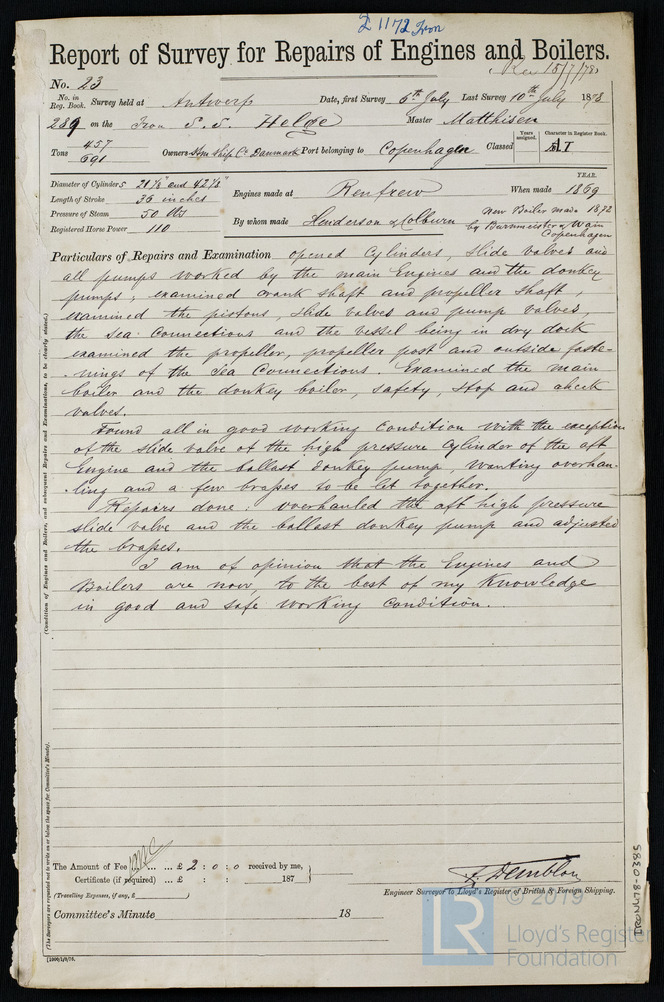 Z 1172 Iron
Report of Survey for Repairs of Engines and Boilers.
(Rec 15/7/78)
No. 23
No. in Reg. Book. Survey held at Antwerp Date, first Survey 6th July Last Survey 10th July 1878
289 on the Iron S.S. Helge Master Matthisen
Tons 457 691 Owners Stm Ship Co Danmark Port belonging to Copenhagen Classed Years assigned. Character in Register Book. A1
Diameter of Cylinders 21 1/8" and 42 1/8"
Length of Stroke 36 inches
Pressure of Steam 50 lbs
Registered Horse Power 110
Engines made at Renfrew When made YEAR. 1869
By whom made Henderson & Colburn New Boiler made 1872
by Burmeister & Wain
Copenhagen
Particulars of Repairs and Examination opened Cylinders, slide valves and
all pumps worked by the main Engines and the donkey
pumps; examined crank shaft and propeller shaft,
examined the pistons, slide valves and pump valves,
the sea connections and the vessel being in dry dock
examined the propeller, propeller post and outside faste-
-nings of the Sea Connections. Examined the main
boiler and the donkey boiler, safety, stop and check
valves.
Found all in good working Condition with the exception
of the slide valve of the high pressure Cylinder of the aft
Engine and the ballast donkey pump, wanting overhau-
-ling and a few brasses to be let together.
Repairs done: overhauled the aft high pressure
slide valve and the ballast donkey pump and adjusted
the brasses.
I am of opinion that the Engines and
Boilers are now, to the best of my Knowledge
in good and safe working Condition.
(Condition of Engines and Boilers, and subsequent Repairs and Examinations, to be clearly stated.)
(The Surveyors are requested not to write on or below the space for Committee's Minute).
The Amount of Fee ... ... £ 2 : 0 : 0 received by me,
Certificate (if required) ... £ : : 187
(Travelling Expenses, if any, £ )
Engineer Surveyor to Lloyd's Register of British & Foreign Shipping.
Committee's Minute 18
IRON478-0385
LR
© 2019
Lloyd's Register
Foundation